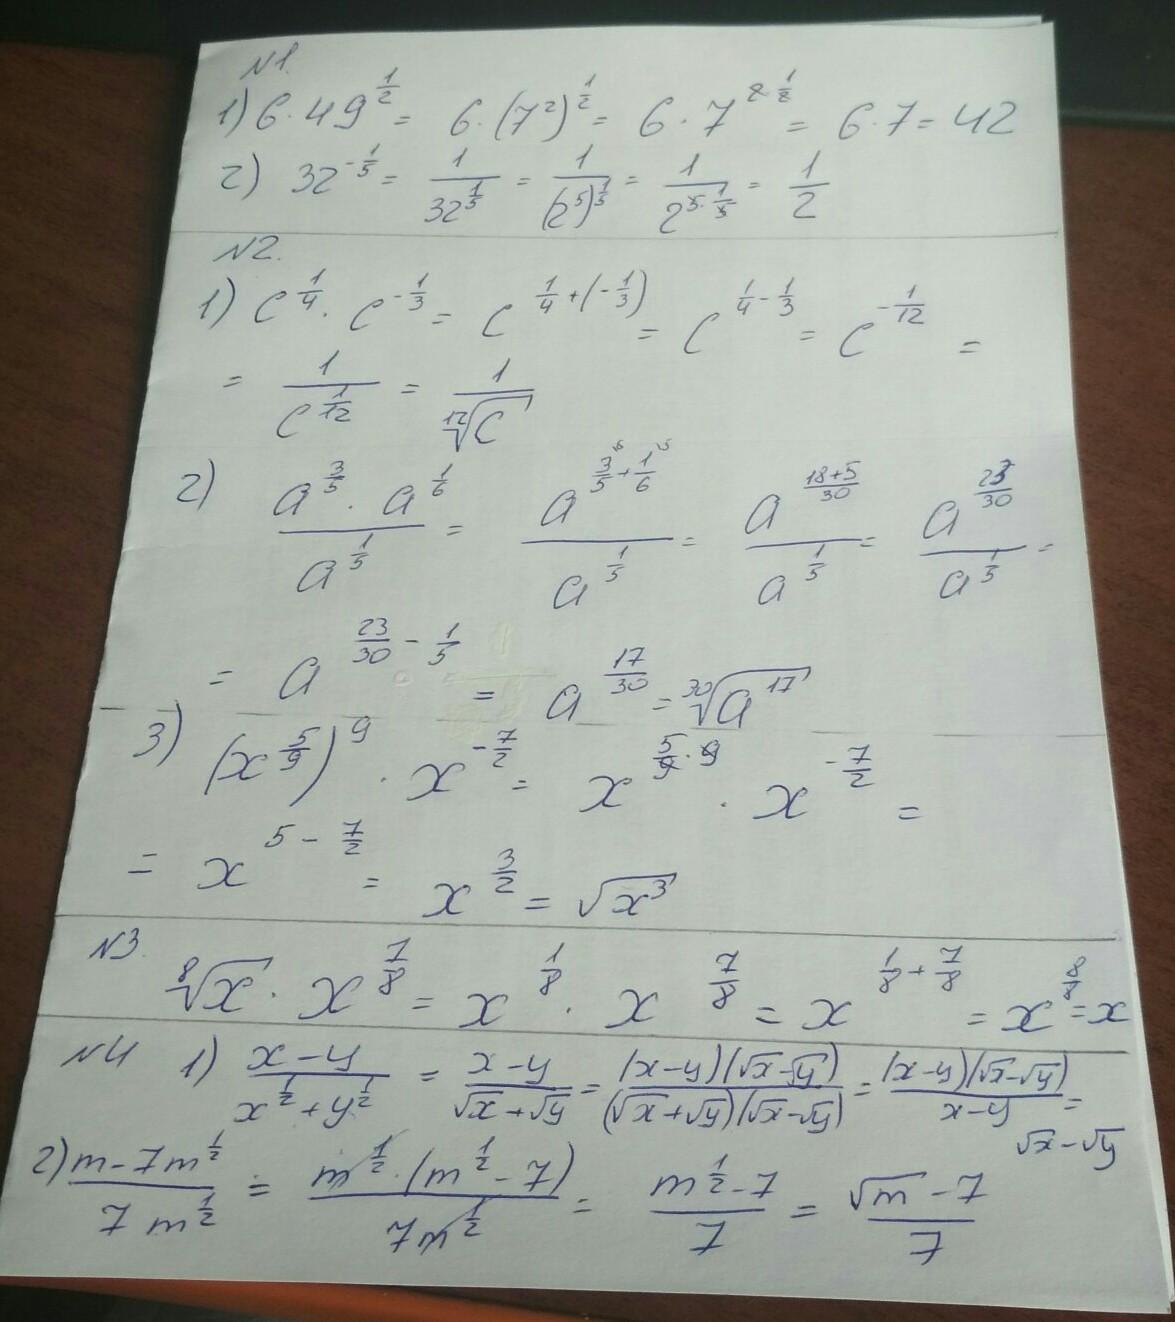 N1.
1) 6·49^(1/2) = 6·(7²)^(1/2) = 6·7^(2·1/2) = 6·7 = 42
2) 32^(-1/5) = 1/32^(1/5) = 1/(2⁵)^(1/5) = 1/2^(5·1/5) = 1/2
N2.
1) c^(1/4) · c^(-1/3) = c^(1/4+(-1/3)) = c^(1/4-1/3) = c^(-1/12) =
= 1/c^(1/12) = 1/¹²√c
2) (a^(3/5) · a^(1/6))/a^(1/5) = a^(3/5+1/6)/a^(1/5) = a^((18+5)/30)/a^(1/5) = a^(23/30)/a^(1/5) =
= a^(23/30 - 1/5) = a^(17/30) = ³⁰√(a¹⁷)
3) (x^(5/9))^9 · x^(-7/2) = x^(5/9·9) · x^(-7/2) =
= x^(5-7/2) = x^(3/2) = √(x³)
N3.
⁸√x · x^(7/8) = x^(1/8) · x^(7/8) = x^(1/8+7/8) = x^(8/8) = x
N4 1) (x-y)/(x^(1/2)+y^(1/2)) = (x-y)/(√x+√y) = (x-y)(√x-√y)/((√x+√y)(√x-√y)) = (x-y)(√x-√y)/(x-y) =
√x-√y
2) (m-7m^(1/2))/(7m^(1/2)) = (m^(1/2)·(m^(1/2)-7))/(7m^(1/2)) = (m^(1/2)-7)/7 = (√m-7)/7